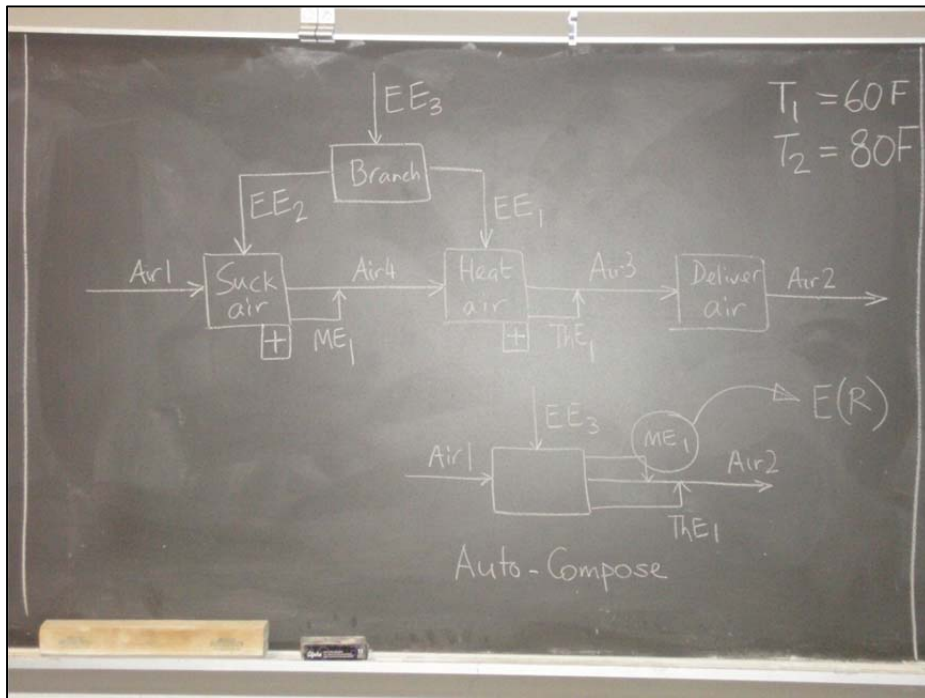 EE3
T1 = 60F
T2 = 80F
Branch
EE2
EE1
Air1
Suck
air
Air4
Heat
air
Air3
Deliver
air
Air2
+
ME1
+
ThE1
EE3
ME1
E(R)
Air1
Air2
ThE1
Auto-Compose